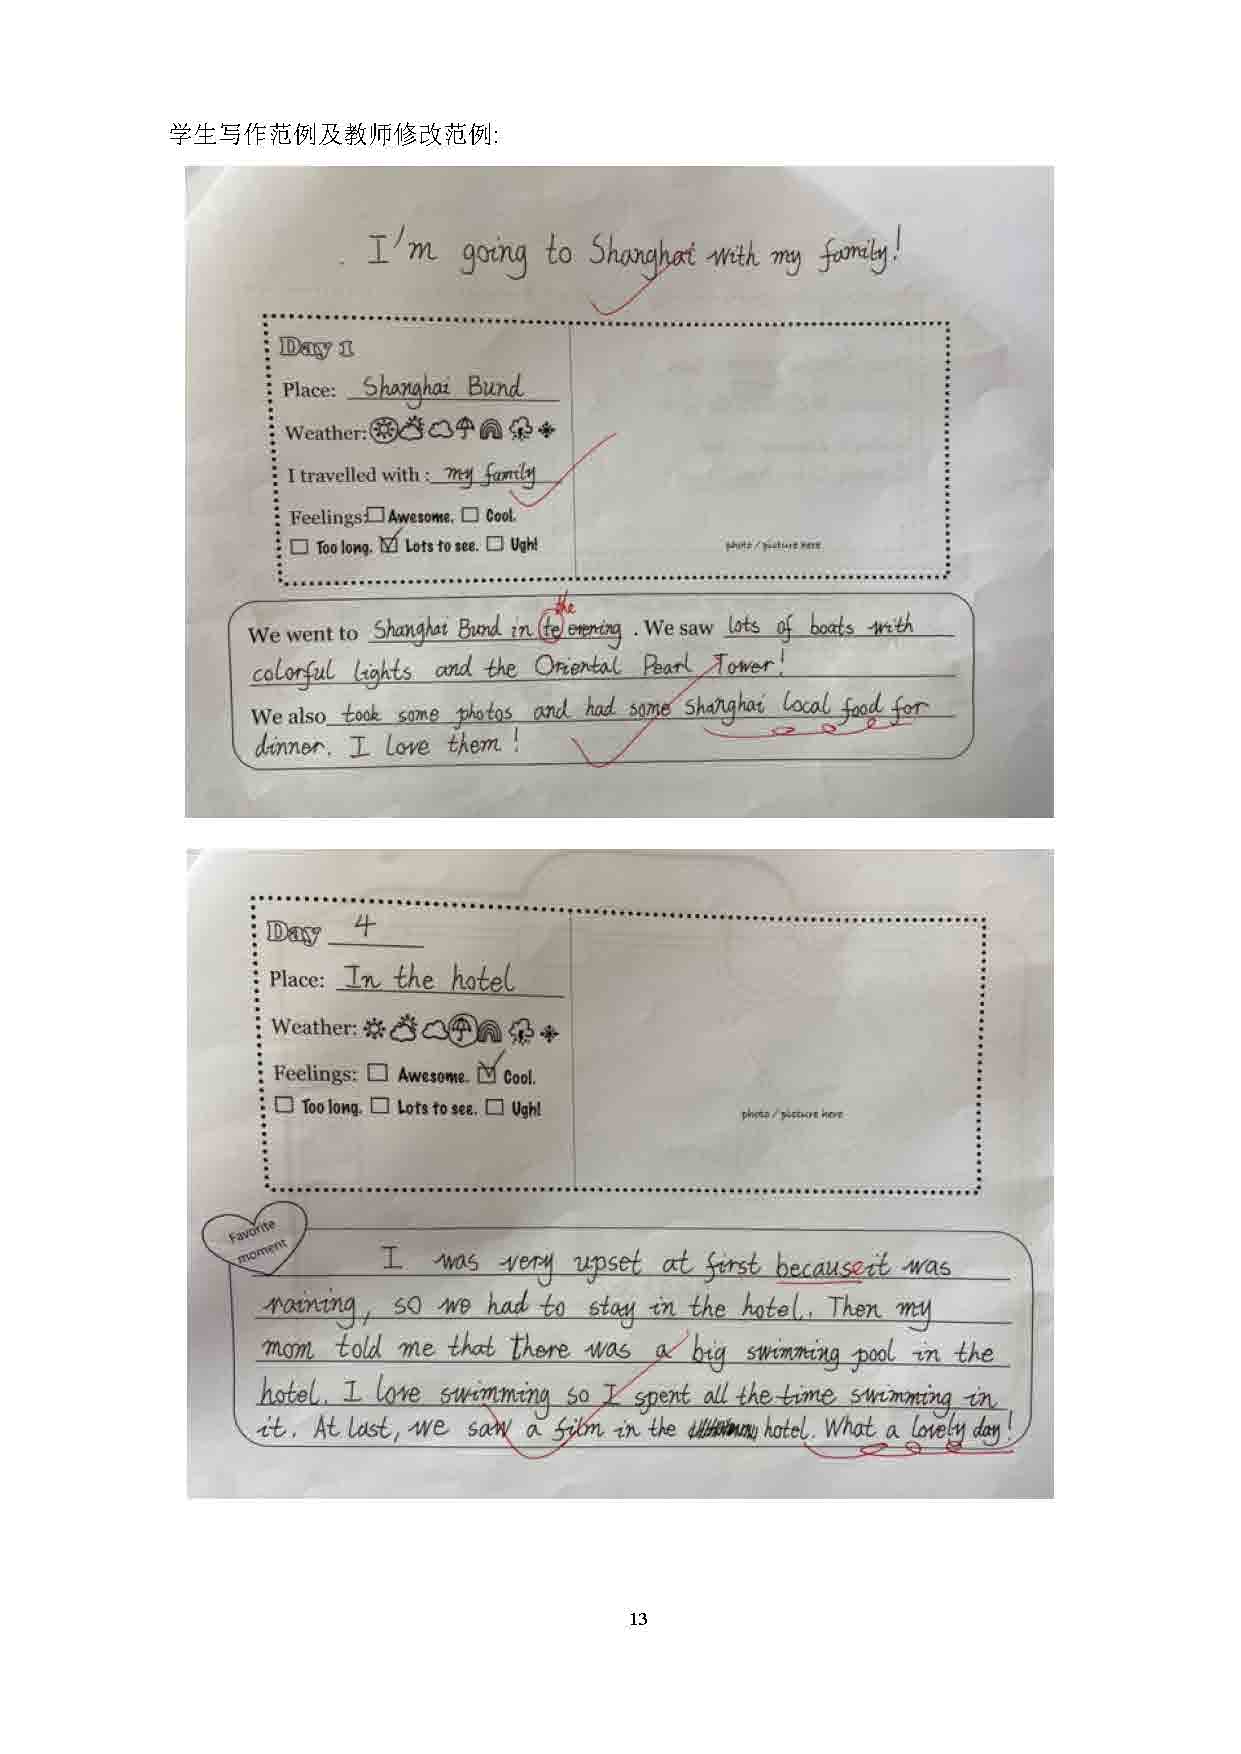 学生写作范例及教师修改范例:
I'm going to Shanghai with my family!
Day 1
Place: Shanghai Bund
Weather:
I travelled with : my family
Feelings: Awesome. Cool.
Too long. Lots to see. Ugh!
photo / picture here
the
We went to Shanghai Bund in te evening . We saw lots of boats with
colorful lights and the Oriental Pearl Tower!
We also took some photos and had some Shanghai local food for
dinner. I love them!
Day 4
Place: In the hotel
Weather:
Feelings: Awesome. Cool.
Too long. Lots to see. Ugh!
photo / picture here
Favorite
moment
I was very upset at first because it was
raining, so we had to stay in the hotel. Then my
mom told me that there was a big swimming pool in the
hotel. I love swimming so I spent all the time swimming in
it. At last, we saw a film in the hotel. What a lovely day!
13